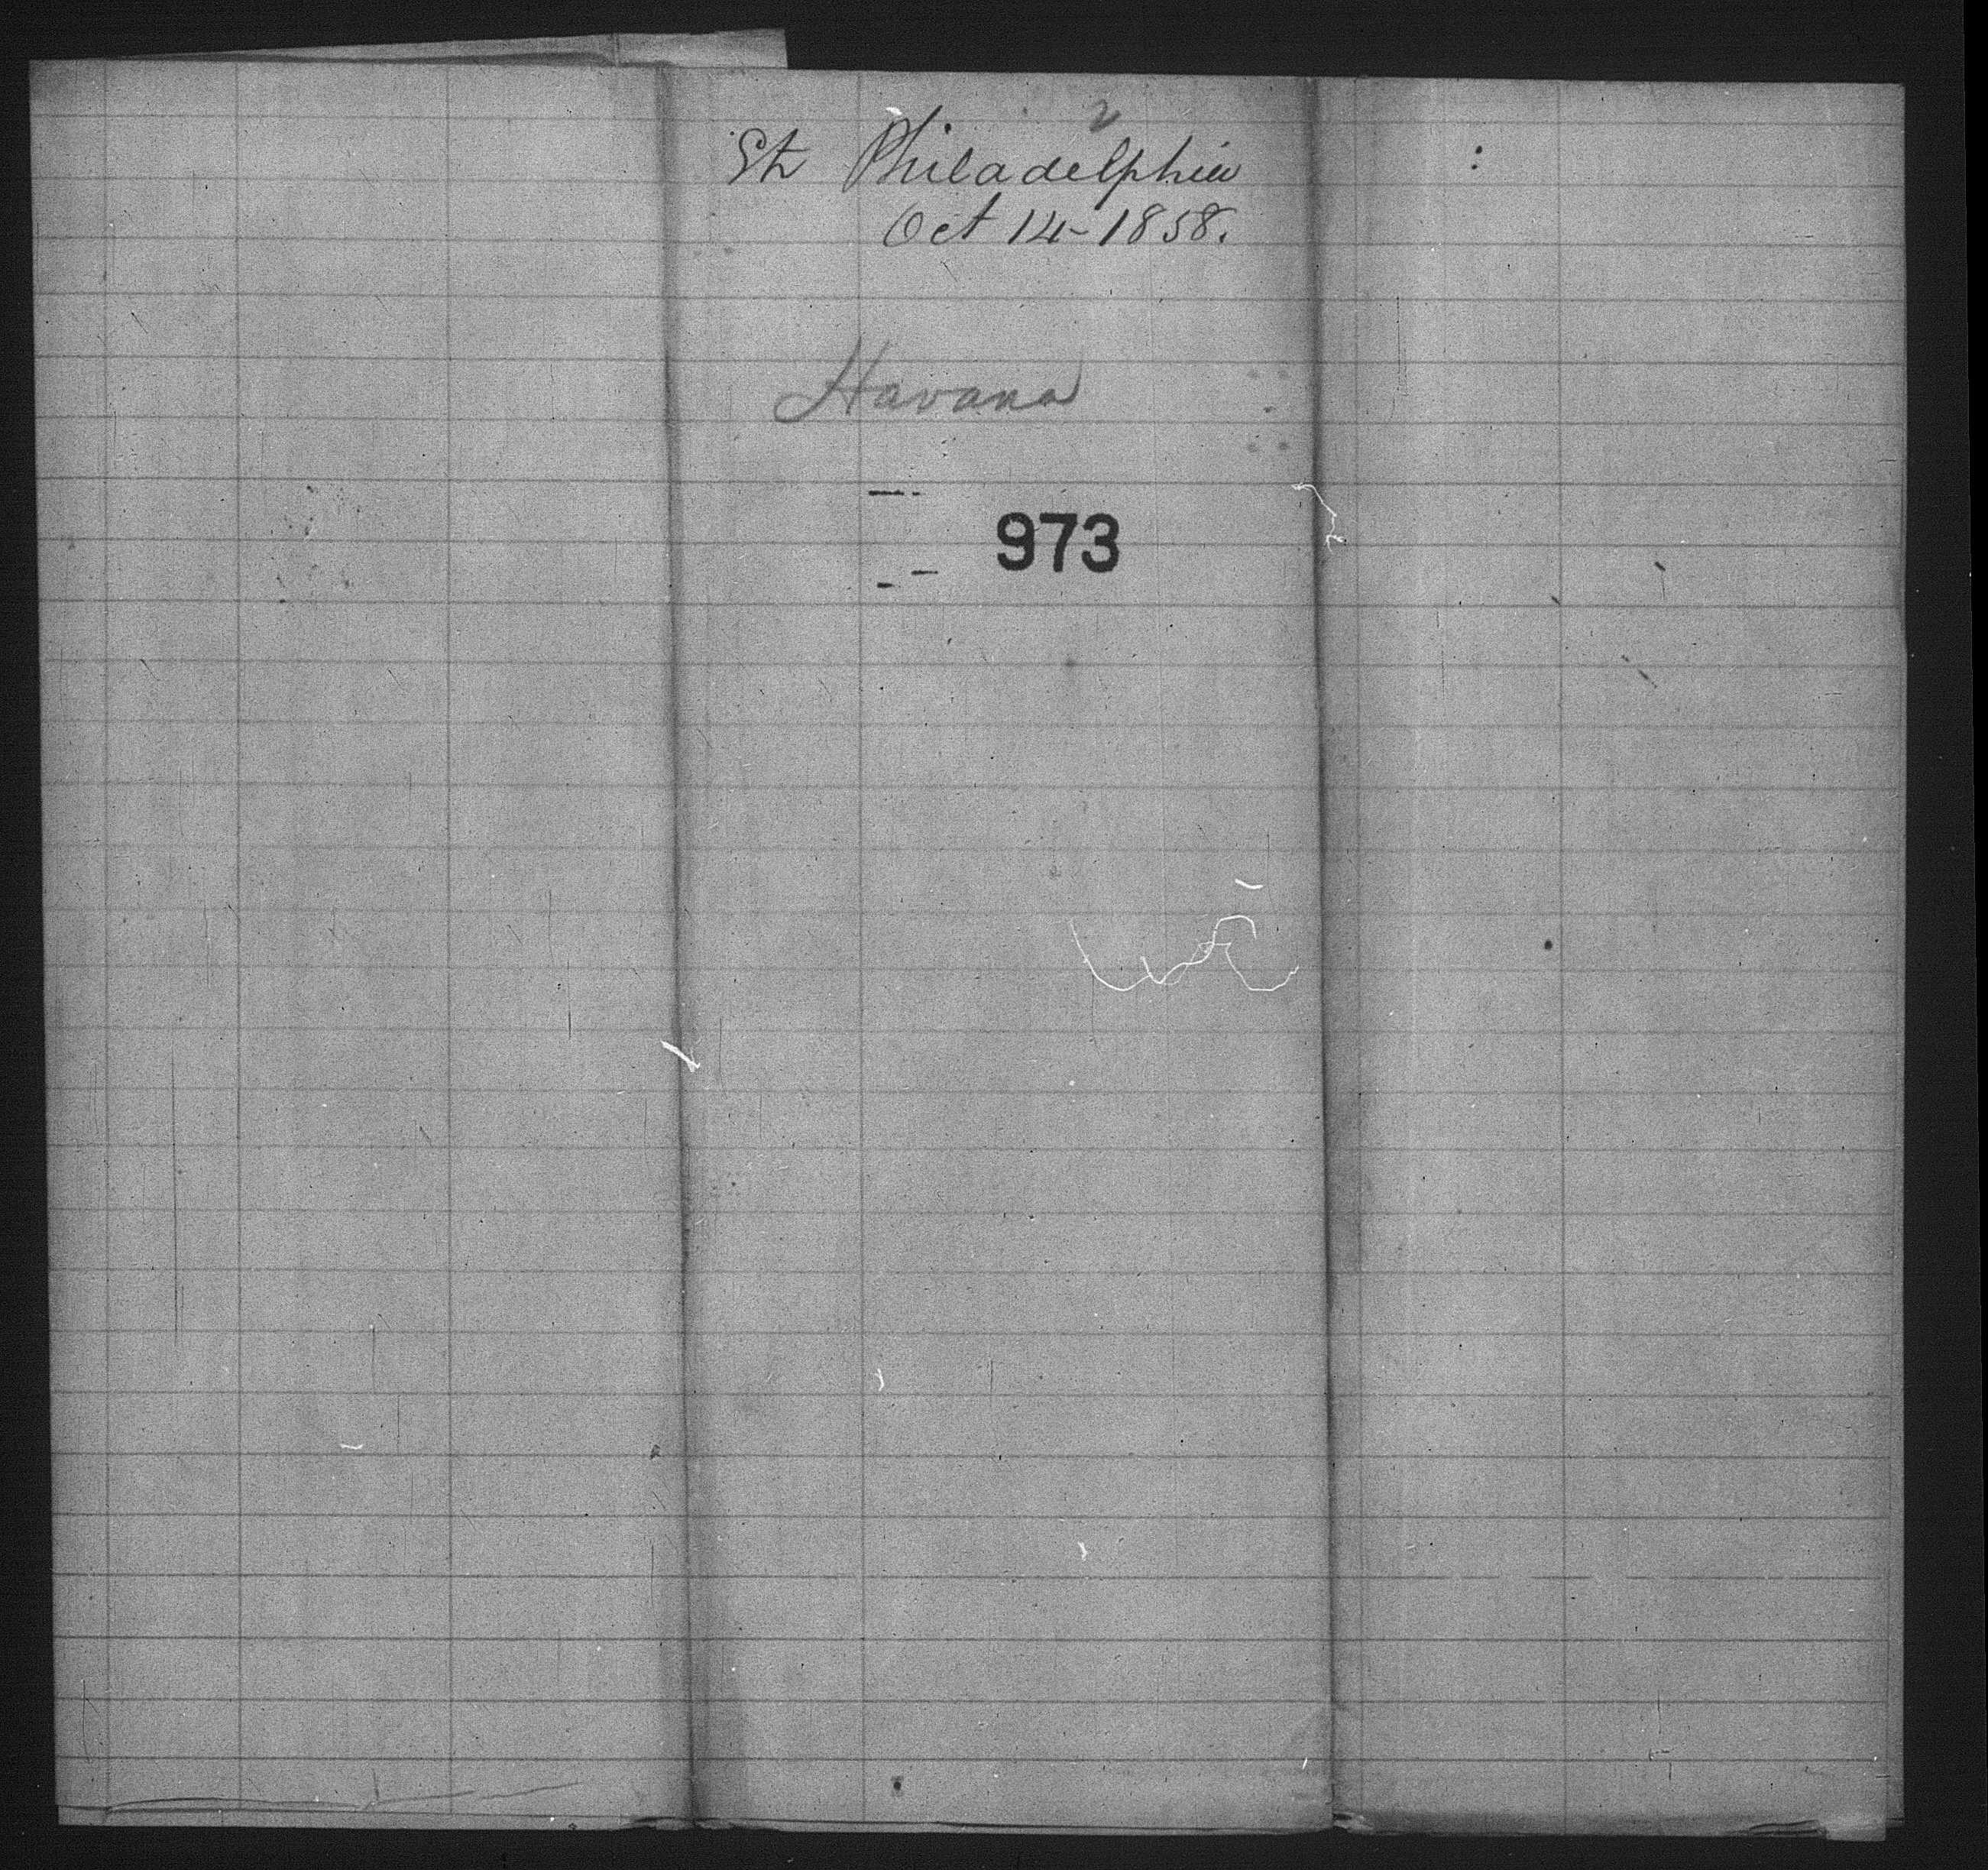 2
St Philadelphia
Oct 14-1858.
Havana
973